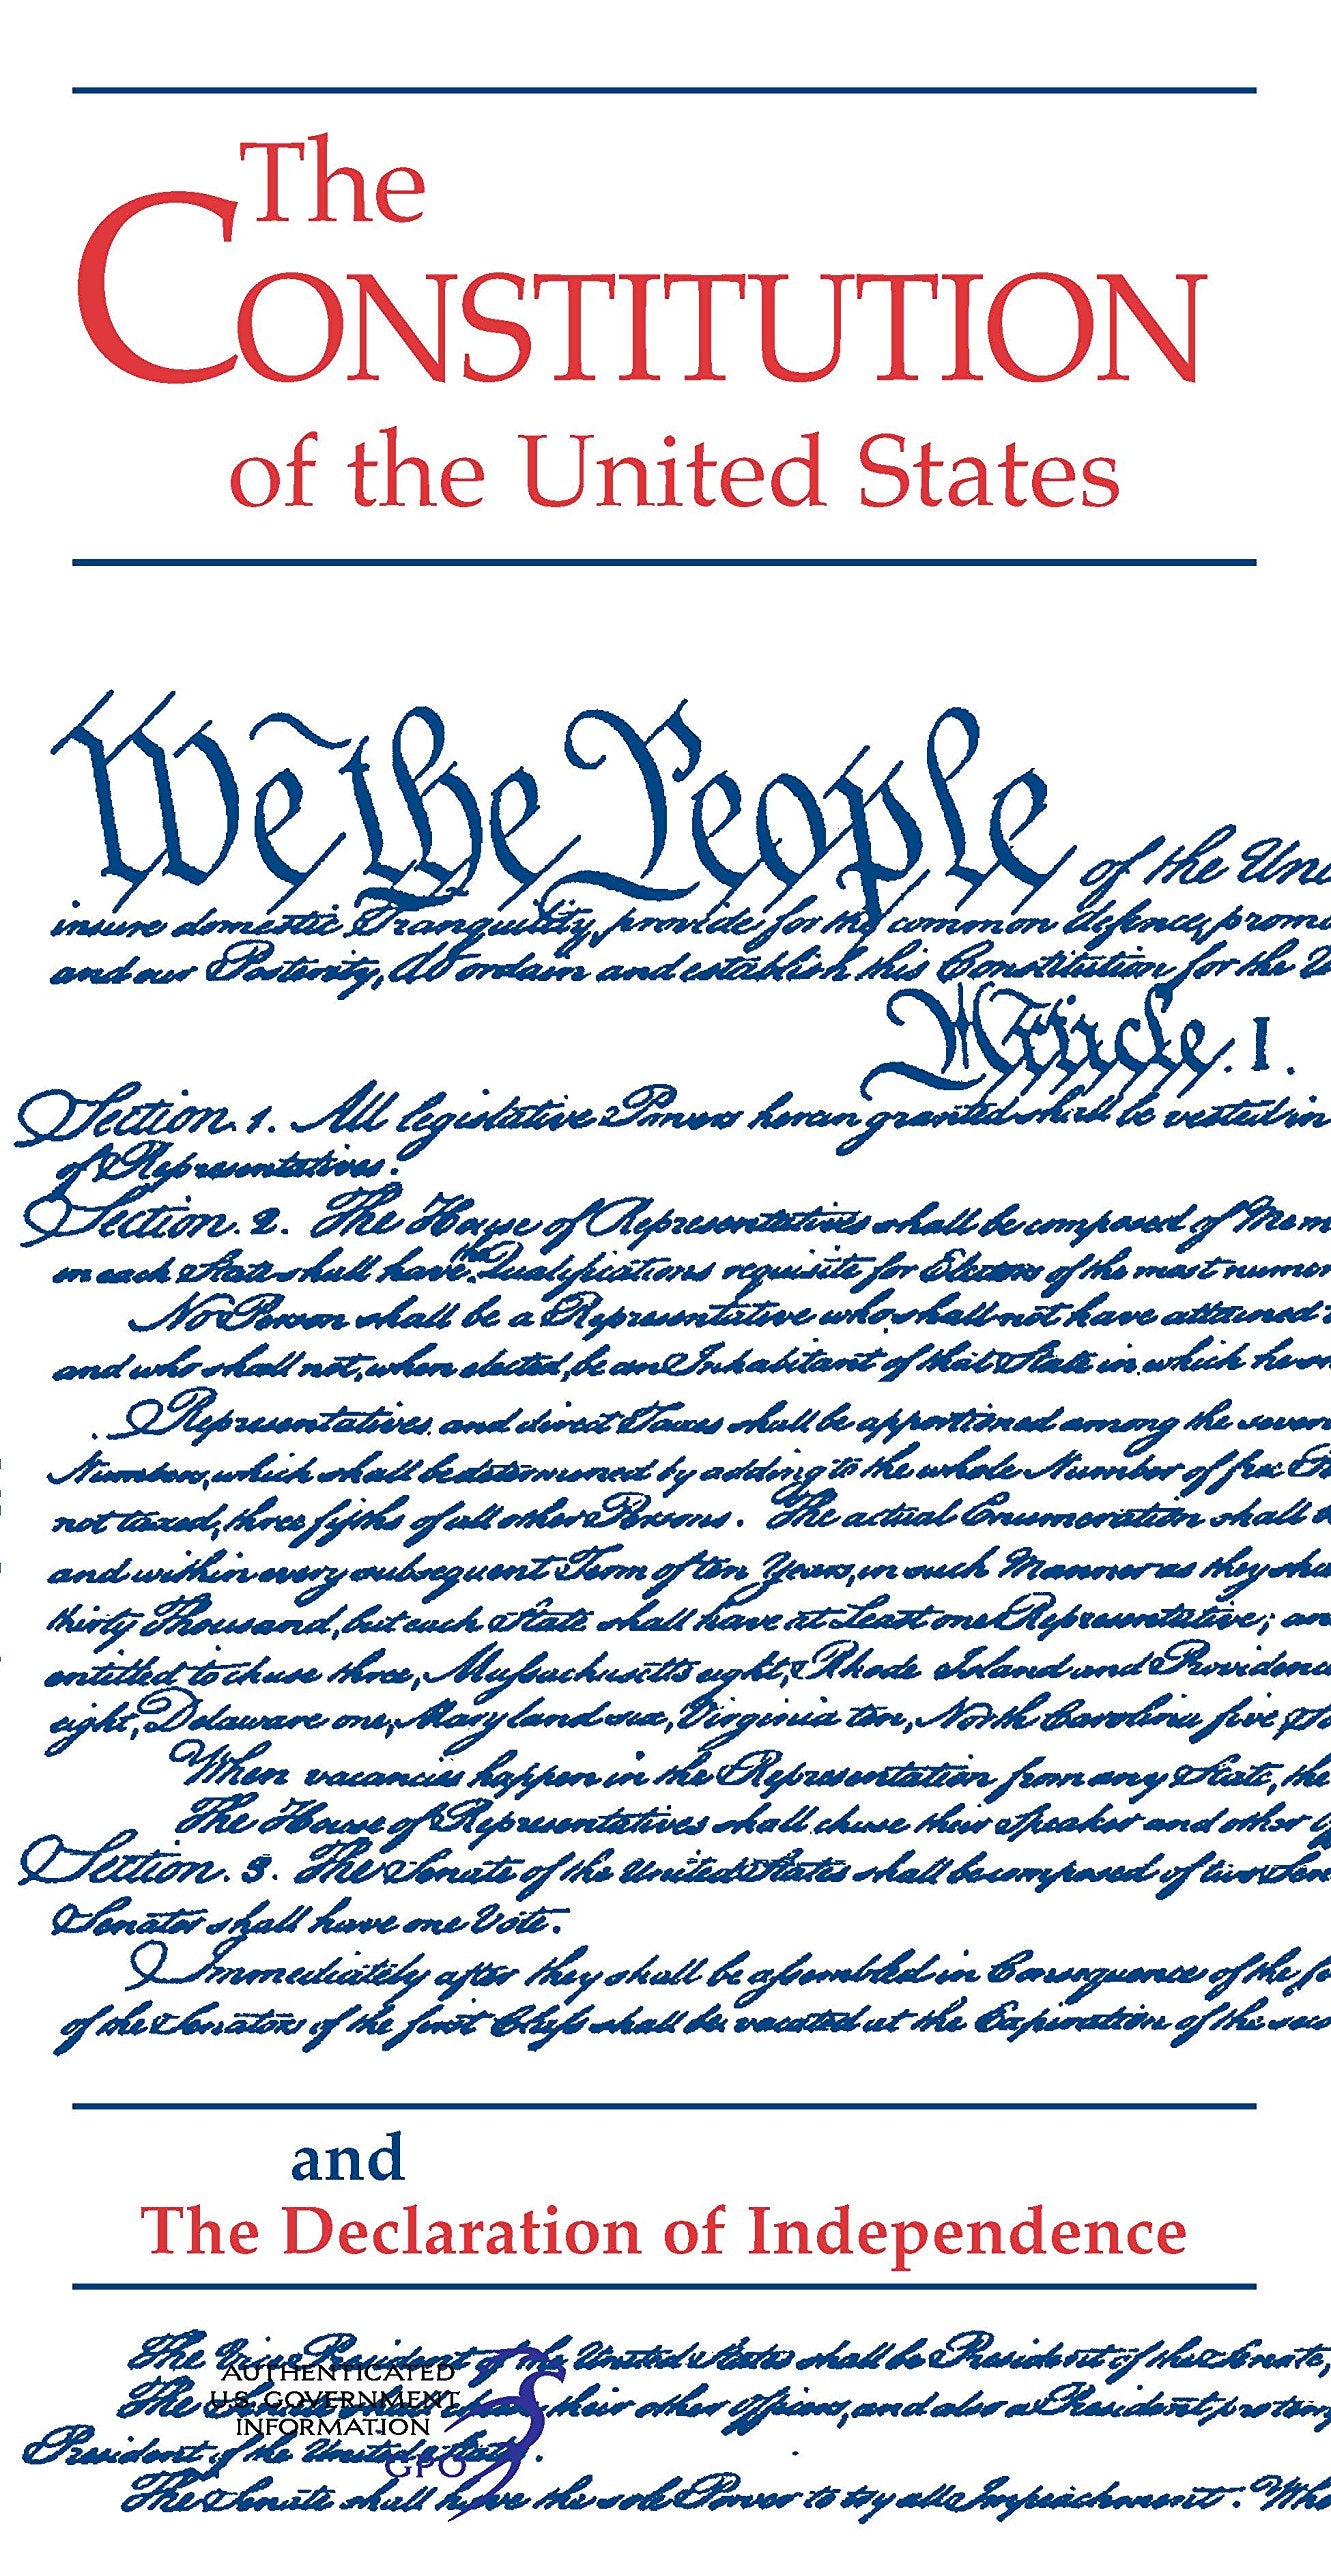 The
CONSTITUTION
of the United States
We the People of the Uni
insure domestic Tranquility, provide for the common defence, promo
and our Posterity, do ordain and establish this Constitution for the U
Article. I.
Section. 1. All legislative Powers herein granted shall be vested in
of Representatives.
Section. 2. The House of Representatives shall be composed of Mem
in each State shall have the Qualifications requisite for Electors of the most numer
No Person shall be a Representative who shall not have attained t
and who shall not, when elected, be an Inhabitant of that State in which he s
Representatives and direct Taxes shall be apportioned among the sever
Numbers, which shall be determined by adding to the whole Number of free P
not taxed, three fifths of all other Persons. The actual Enumeration shall b
and within every subsequent Term of ten Years, in such Manner as they sha
thirty Thousand, but each State shall have at Least one Representative; an
entitled to chuse three, Massachusetts eight, Rhode Island and Providenc
eight, Delaware one, Maryland six, Virginia ten, North Carolina five, So
When vacancies happen in the Representation from any State, the
The House of Representatives shall chuse their Speaker and other O
Section. 3. The Senate of the United States shall be composed of two Sen
Senator shall have one Vote.
Immediately after they shall be assembled in Consequence of the fi
of the Senators of the first Class shall be vacated at the Expiration of the seco
and
The Declaration of Independence
The Vice President of the United States shall be President of the Senate,
The Senate shall chuse their other Officers, and also a President pro tem
President of the United States.
The Senate shall have the sole Power to try all Impeachments. Whe
AUTHENTICATED
U.S. GOVERNMENT
INFORMATION
GPO